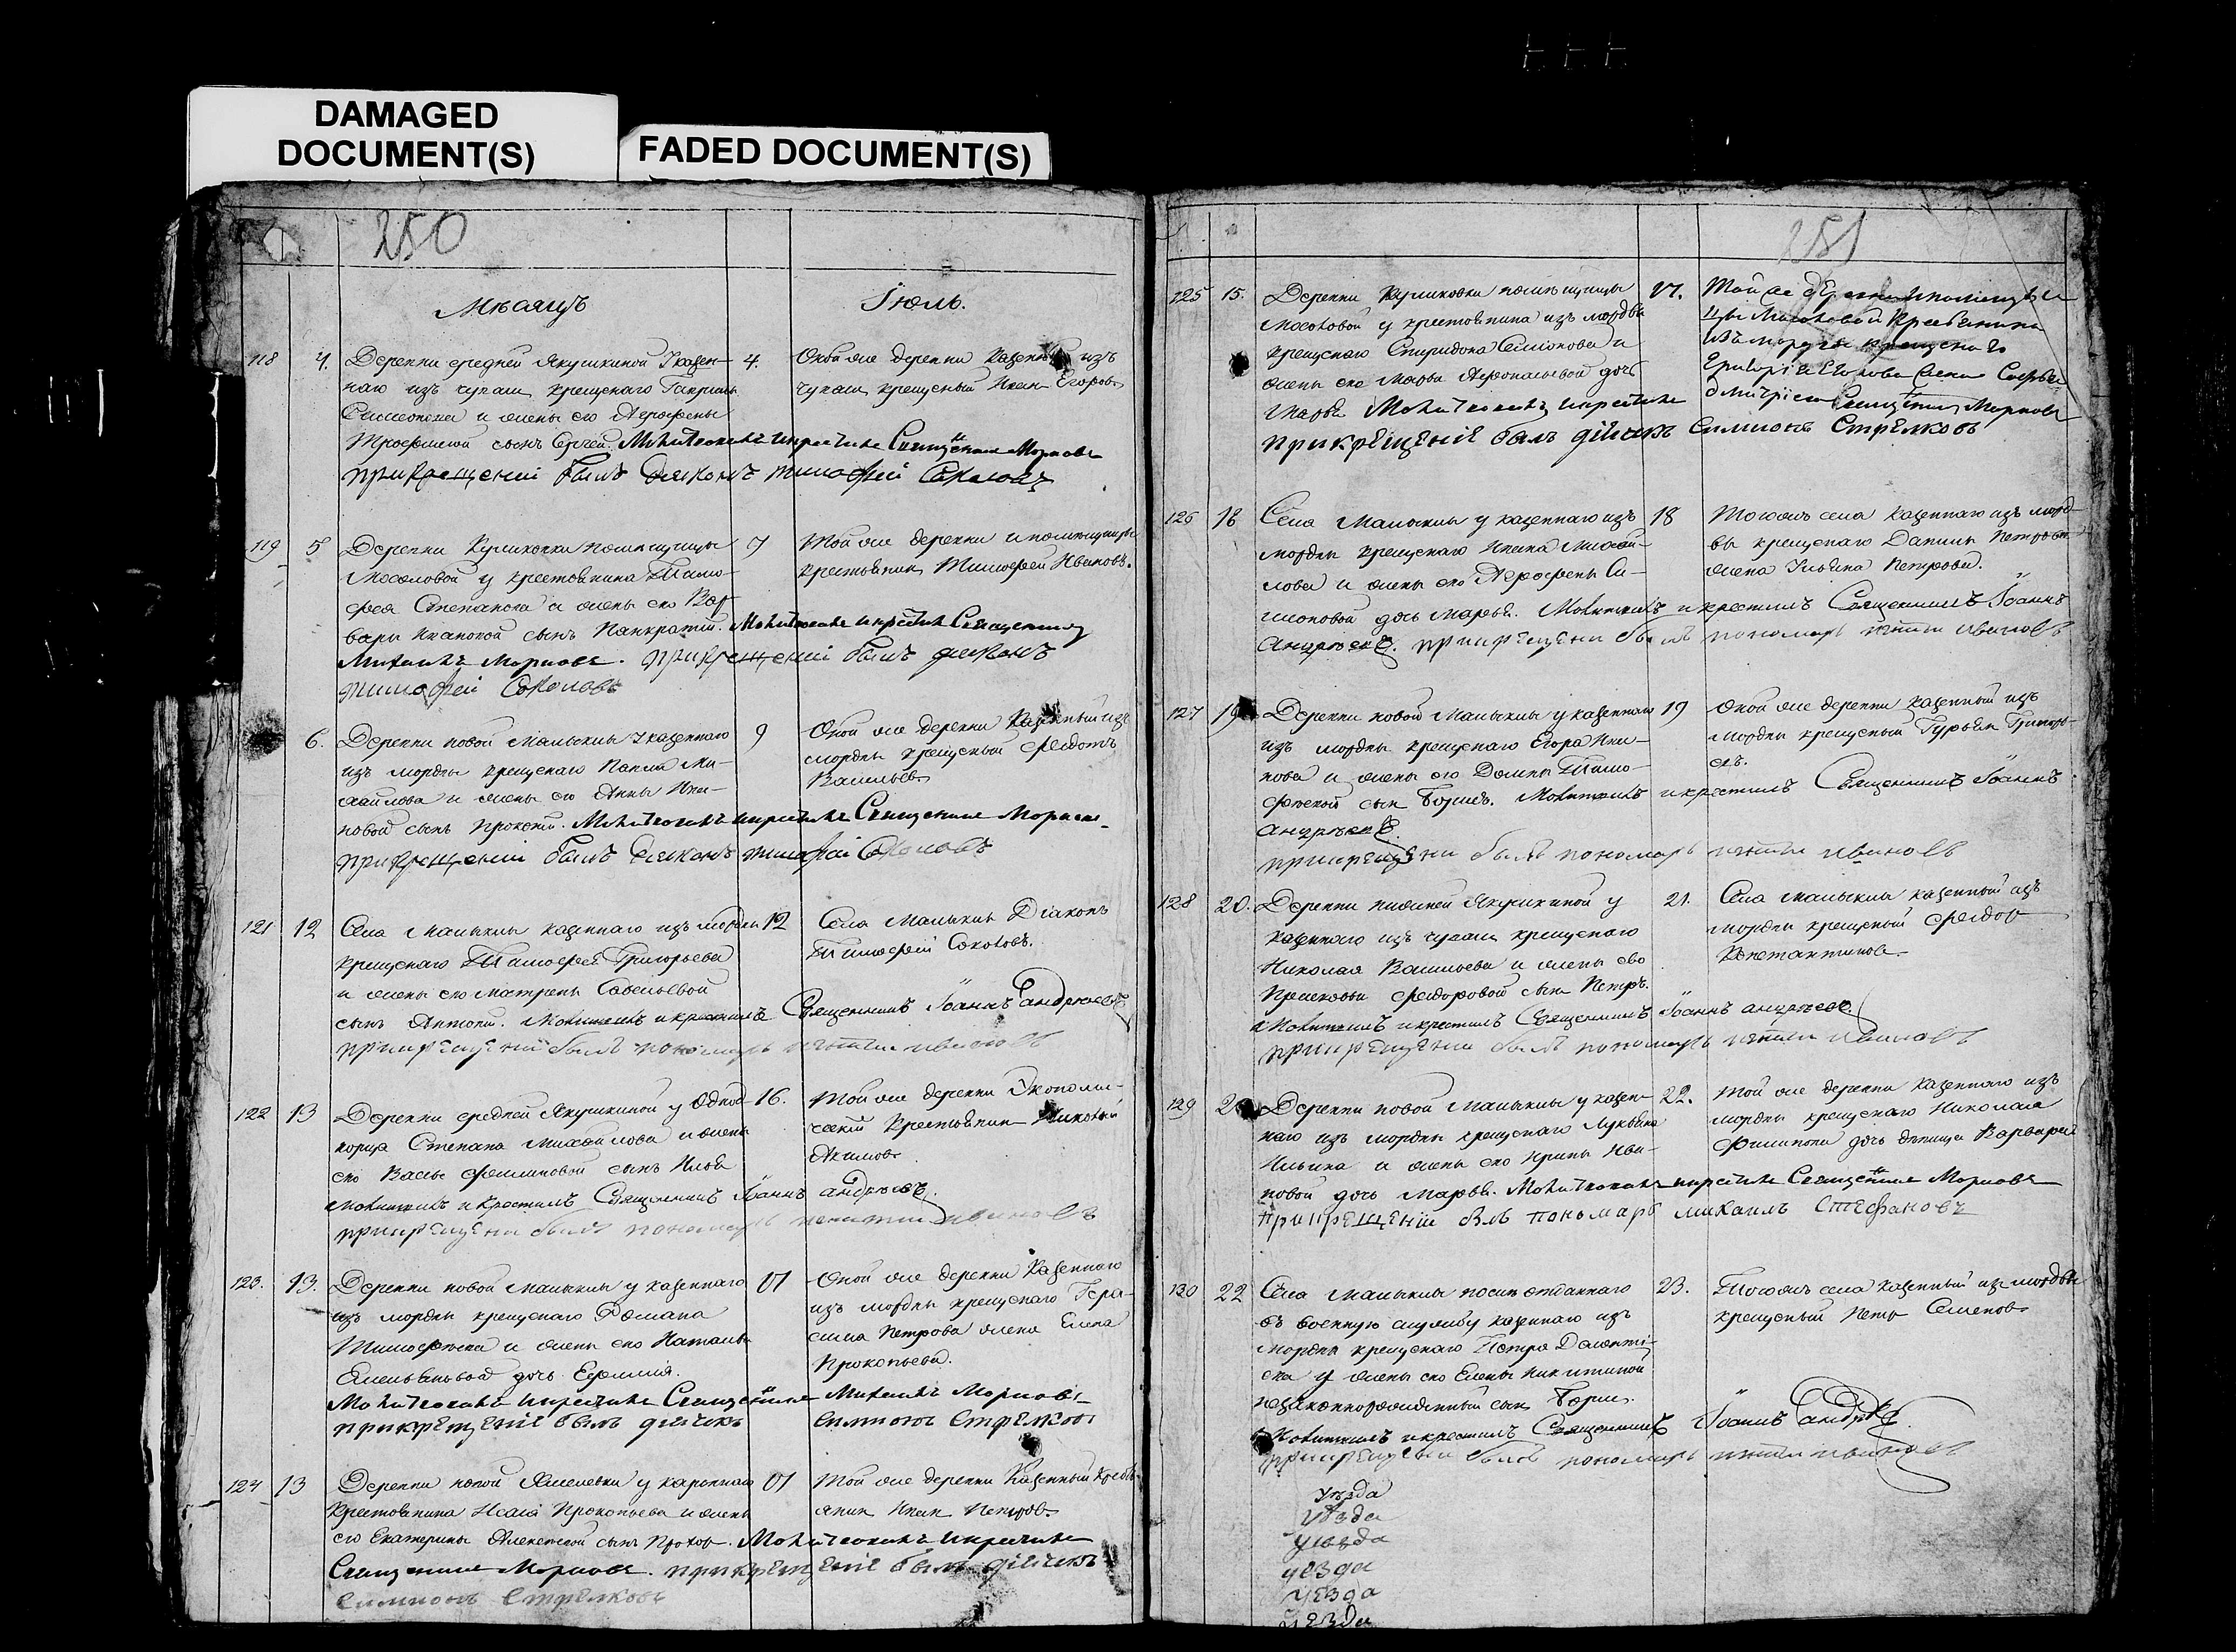 DAMAGED
DOCUMENT(S)
FADED DOCUMENT(S)
250
Мѣсяцъ
Іюль.
118 4. Деревни средней Якушкиной У казен-
наго изъ чуваш крещенаго Гаврилы
Симеонова и жены его Агрофены
Трофимовой сынъ Сергей. Молитвовалъ и крестилъ Священникъ Морковъ
при крещеніи былъ Дьяконъ Тимофей Соколовъ
4. Оной же деревни казенный изъ
чуваш крещеный Иван Егоровъ
119 5 Деревни Куликовки помѣщицы
Мосоловой у крестьянина Тимо-
фея Степанова и жены его Вар-
вары Ивановой сынъ Панкратій. Молитвовалъ и крестилъ Священникъ
Михаилъ Морковъ. при крещеніи былъ дьяконъ
Тимофей Соколовъ
7 Той же деревни и помѣщицы
крестьянинъ Тимофей Ивановъ.
6. Деревни новой Малыклы У казеннаго
изъ мордвы крещенаго Павла Ми-
хайлова и жены его Анны Ива-
новой сынъ Прокопій. Молитвовалъ и крестилъ Священникъ Морковъ
при крещеніи былъ Дьяконъ Тимофей Соколовъ
9 Оной же деревни казенный изъ
мордвы крещеный Федотъ
Васильевъ
121 12 Села Малыклы казеннаго изъ мордвы
крещенаго Тимофея Григорьева
и жены его Матрены Савельевой
сынъ Антоній. Молитвилъ и крестилъ Священникъ Іоаннъ Андреевъ
при крещени былъ пономарь Иванов
12 Села Малыклы Діаконъ
Тимофей Соколовъ.
122 13 Деревни средней Якушкиной у Однод-
ворца Степана Михайлова и жены
его Васы Филиповой сынъ Илья
Молитвилъ и крестилъ Священникъ Іоаннъ Андреевъ.
при крещени былъ пономарь Ивановъ
16. Той же деревни Экономи-
ческій Крестьянин
Акимовъ
123. 13. Деревни новой Малыклы у казеннаго
изъ мордвы крещенаго Романа
Тимофеева и жены его Натальи
Емельяновой дочь Ефимия.
Молитвовалъ и крестилъ Священникъ Михаилъ Морковъ
при крещеніе былъ дьячокъ Симионъ Стрелков
17 Оной же деревни казеннаго
изъ мордвы крещенаго Гера-
сима Петрова жена Елена
Прокопьева.
124 13 Деревни новой у казеннаго
крестьянина Исаія Прокопьева и жены
его Екатерины Алексеевой сынъ Прохор. Молитвовалъ и крестилъ
Священникъ Морковъ. при крещеніе былъ дьячокъ
Симионъ Стрелковъ
17 Той же деревни Казенный крестья-
нин Иван Петровъ
251
125 15. Деревни Куликовки помѣщицы
Мосоловой у крестьянина изъ мордвы
крещенаго Спиридона Семіонова и
жены его Марьи Афонасьевой дочь
Марья Молитвовалъ и крестилъ Священникъ Морковъ
при крещеніе былъ дьячокъ Симионъ Стрелковъ
17. Той же деревни и помещи-
цы Мосоловой крестьянина
изъ мордвы крещенаго
Григорія Егорова жена Софья
Дмитріева
126 18 Села Малыклы у казеннаго изъ
мордвы крещенаго Ивана Михай-
лова и жены его Агрофены Си-
мионовой дочь Марья. Молитвилъ и крестилъ Священникъ Іоаннъ
Андреевъ. при крещени былъ пономарь Ивановъ
18 Тогожъ села казеннаго изъ морд-
вы крещенаго Данилы Петрова
жена Ульяна Петрова.
127 19 Деревни новой Малыклы у казеннаго
изъ мордвы крещенаго Егора Ива-
нова и жены его Домны Тимо-
феевой сын Борисъ. Молитвилъ и крестилъ Священникъ Іоаннъ
Андреевъ.
при крещени былъ пономарь Ивановъ
19 Оной же деревни казенный изъ
мордвы крещеный Гурьян Григорь-
евъ.
128 20. Деревни нижней Якушкиной у
казеннаго изъ чуваш крещенаго
Николая Васильева и жены его
Прасковьи Федоровой сын Петръ.
Молитвилъ и крестилъ Священникъ Іоаннъ Андреевъ.
при крещени былъ пономарь Ивановъ
21. Села Малыклы казенный изъ
мордвы крещеный Федор
Константиновъ
129 Деревни новой Малыклы у казен-
наго изъ мордвы крещенаго Лукьяна
Ильина и жены его Ирины Ива-
новой дочь Марья. Молитвовалъ и крестилъ Священникъ Морковъ
при крещеніи былъ пономарь Михаилъ Стефановъ
22. Той же деревни казеннаго изъ
мордвы крещенаго Николая
Филипова дочь девица Варвара
130 22 Села Малыклы у отданнаго
въ военную службу казеннаго изъ
мордвы крещенаго Петра
у жены его Елены Никитиной
незаконнорожденный сын Борис.
Молитвилъ и крестилъ Священникъ Іоаннъ Андреевъ.
при крещени былъ пономарь Ивановъ
23. Тогожъ села казенный из мордвы
крещеный Петр Семеновъ
уѣзда
уѣзда
уѣзда
уезда
уезда
уезда